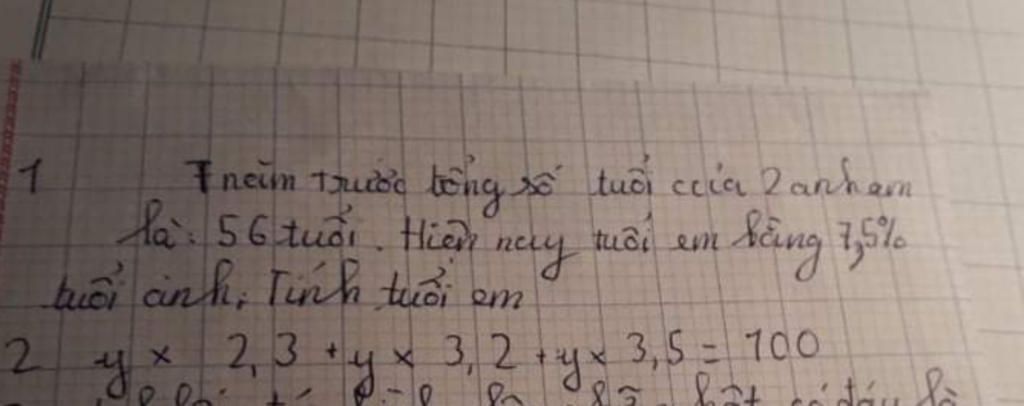 1 7 năm trước tổng số tuổi của 2 anh em
là: 56 tuổi. Hiện nay tuổi em bằng 7,5%
tuổi anh. Tính tuổi em
2 y x 2,3 + y x 3,2 + y x 3,5 = 100